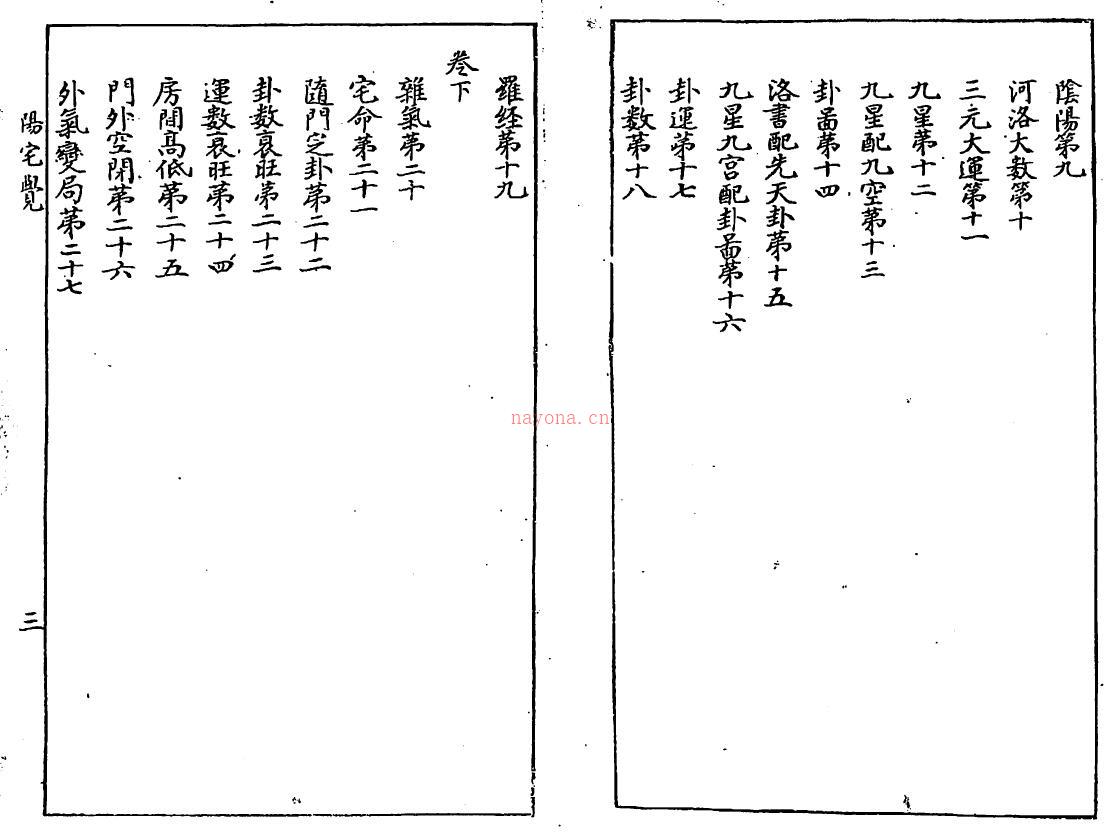 陰陽第九
河洛大数第十
三元大運第十一
九星第十二
九星配九空第十三
卦啚第十四
洛書配先天卦第十五
九星九宮配卦啚第十六
卦運第十七
卦数第十八
羅经第十九
卷下
雜氣第二十
宅命第二十一
隨門定卦第二十二
卦数衰旺第二十三
運数衰旺第二十四
房間高低第二十五
門外空閉第二十六
外氣變局第二十七
陽宅覺
三
nayona.cn